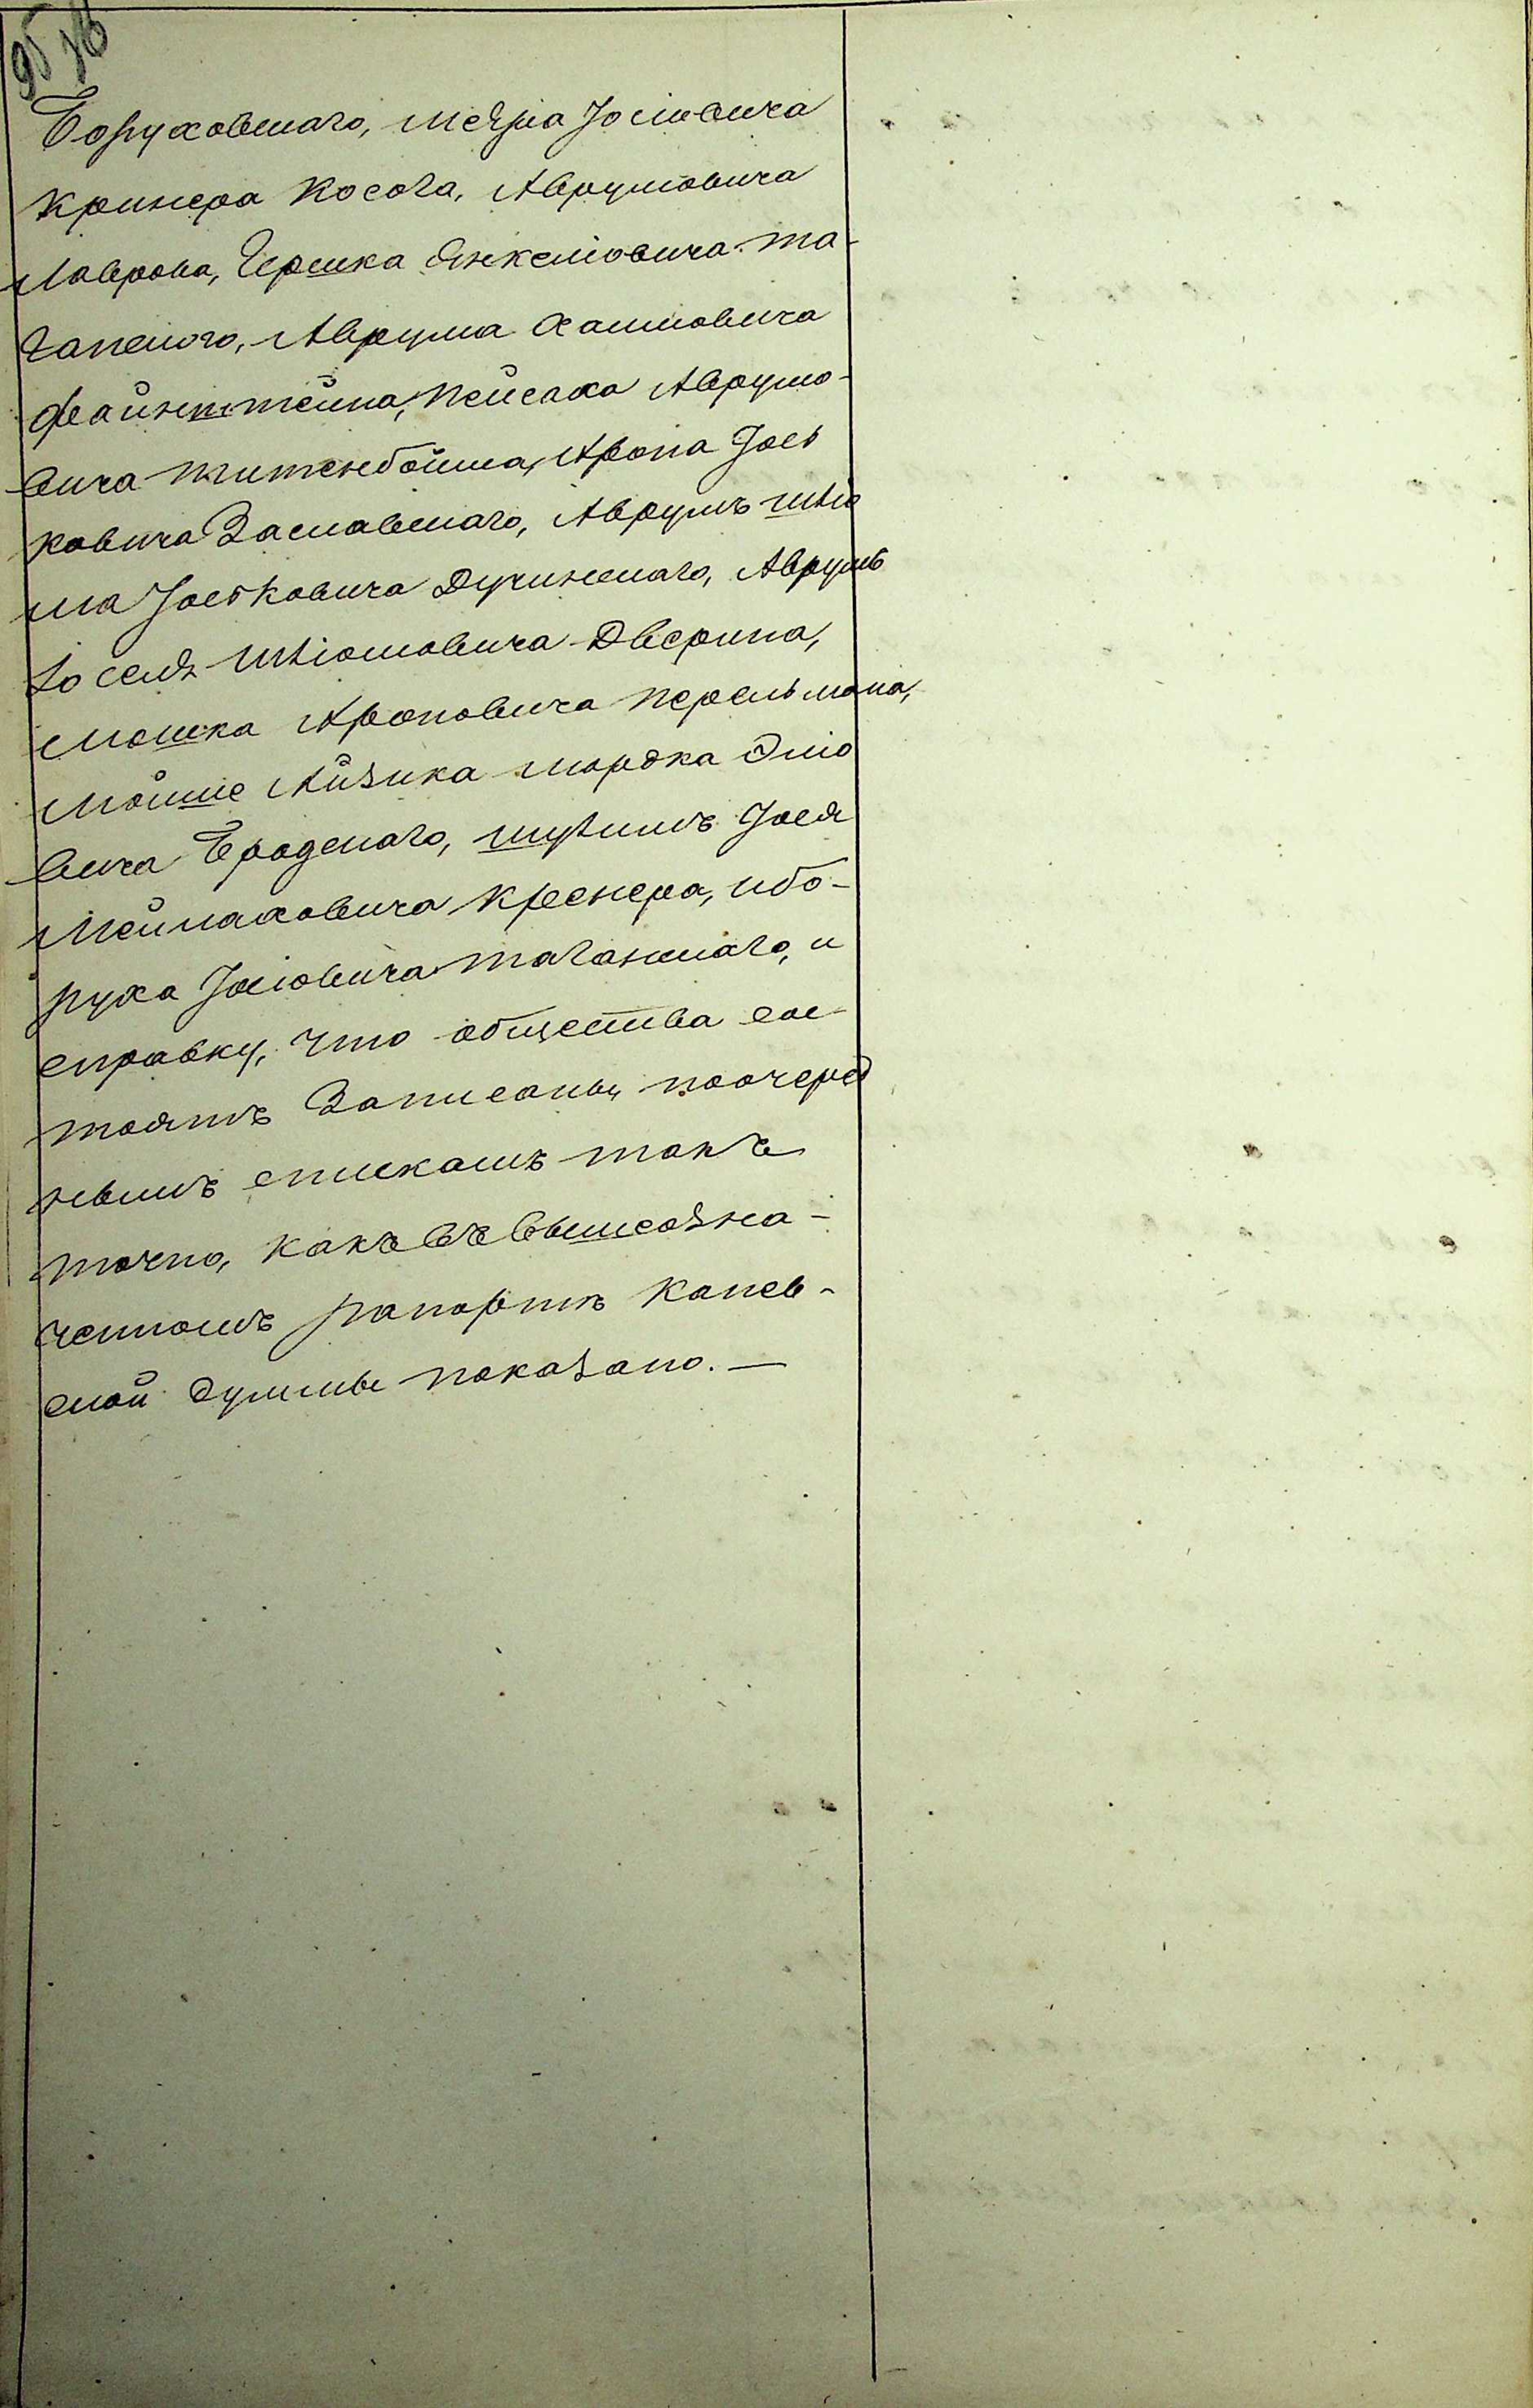 Боруховскаго, Меера Іосиовича
Кринера Косога, Аврумовича
Лаврова, Гершка Янкелiовича Та-
ганского, Аврума Хаимовича
Файнштейна, Пейсаха Аврумо-
вича Титенбойма, Арона Іось
ковича Заславскаго, Аврумъ Шліо
ма Іоськовича Дучинскаго, Аврумъ
Іоселя Шліомовича Дверина,
Мошка Ароновича Перельмана,
Мойше Айзика Мордка Эліо
вича Бродскаго, Іося
Меймаховича Креснера, ибо-
руха Іосіовича Таганскаго, и
справку, что общества сос-
тоятъ Записаны поочеред
нымъ спискамъ такъ
точно, какъ въ вышеозна-
ченномъ рапортѣ Канев-
ской думмы показано. —